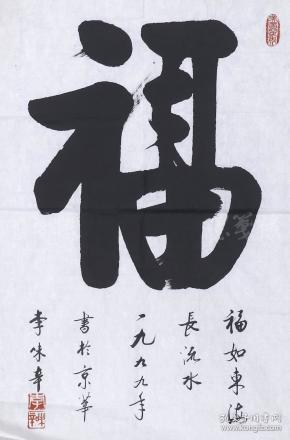 福
福如東海
長流水
一九九九年
書於京華
李味辛